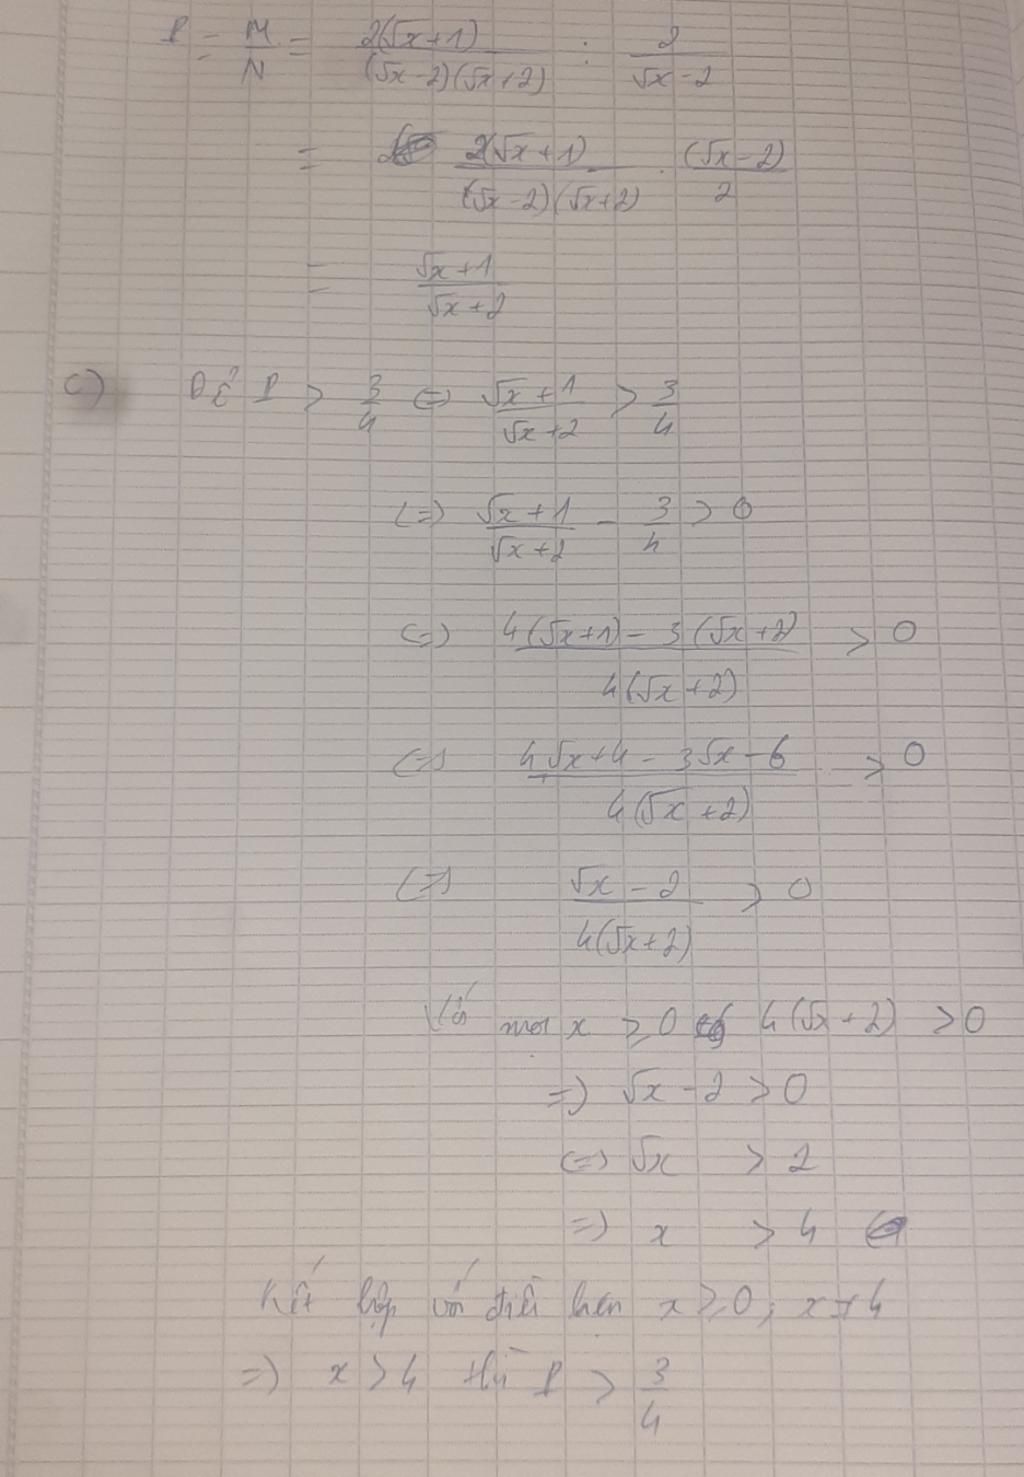 P = M/N = 2(√x+1)/((√x-2)(√x+2)) : 2/(√x-2)
= 2(√x+1)/((√x-2)(√x+2)) . (√x-2)/2
= (√x+1)/(√x+2)
c) Để P > 3/4 <=> (√x+1)/(√x+2) > 3/4
<=> (√x+1)/(√x+2) - 3/4 > 0
<=> (4(√x+1) - 3(√x+2))/(4(√x+2)) > 0
<=> (4√x+4-3√x-6)/(4(√x+2)) > 0
<=> (√x-2)/(4(√x+2)) > 0
Với mọi x ≥ 0 4(√x+2) > 0
=> √x-2 > 0
<=> √x > 2
=> x > 4
Kết hợp với điều kiện x ≥ 0; x ≠ 4
=> x > 4 thì P > 3/4